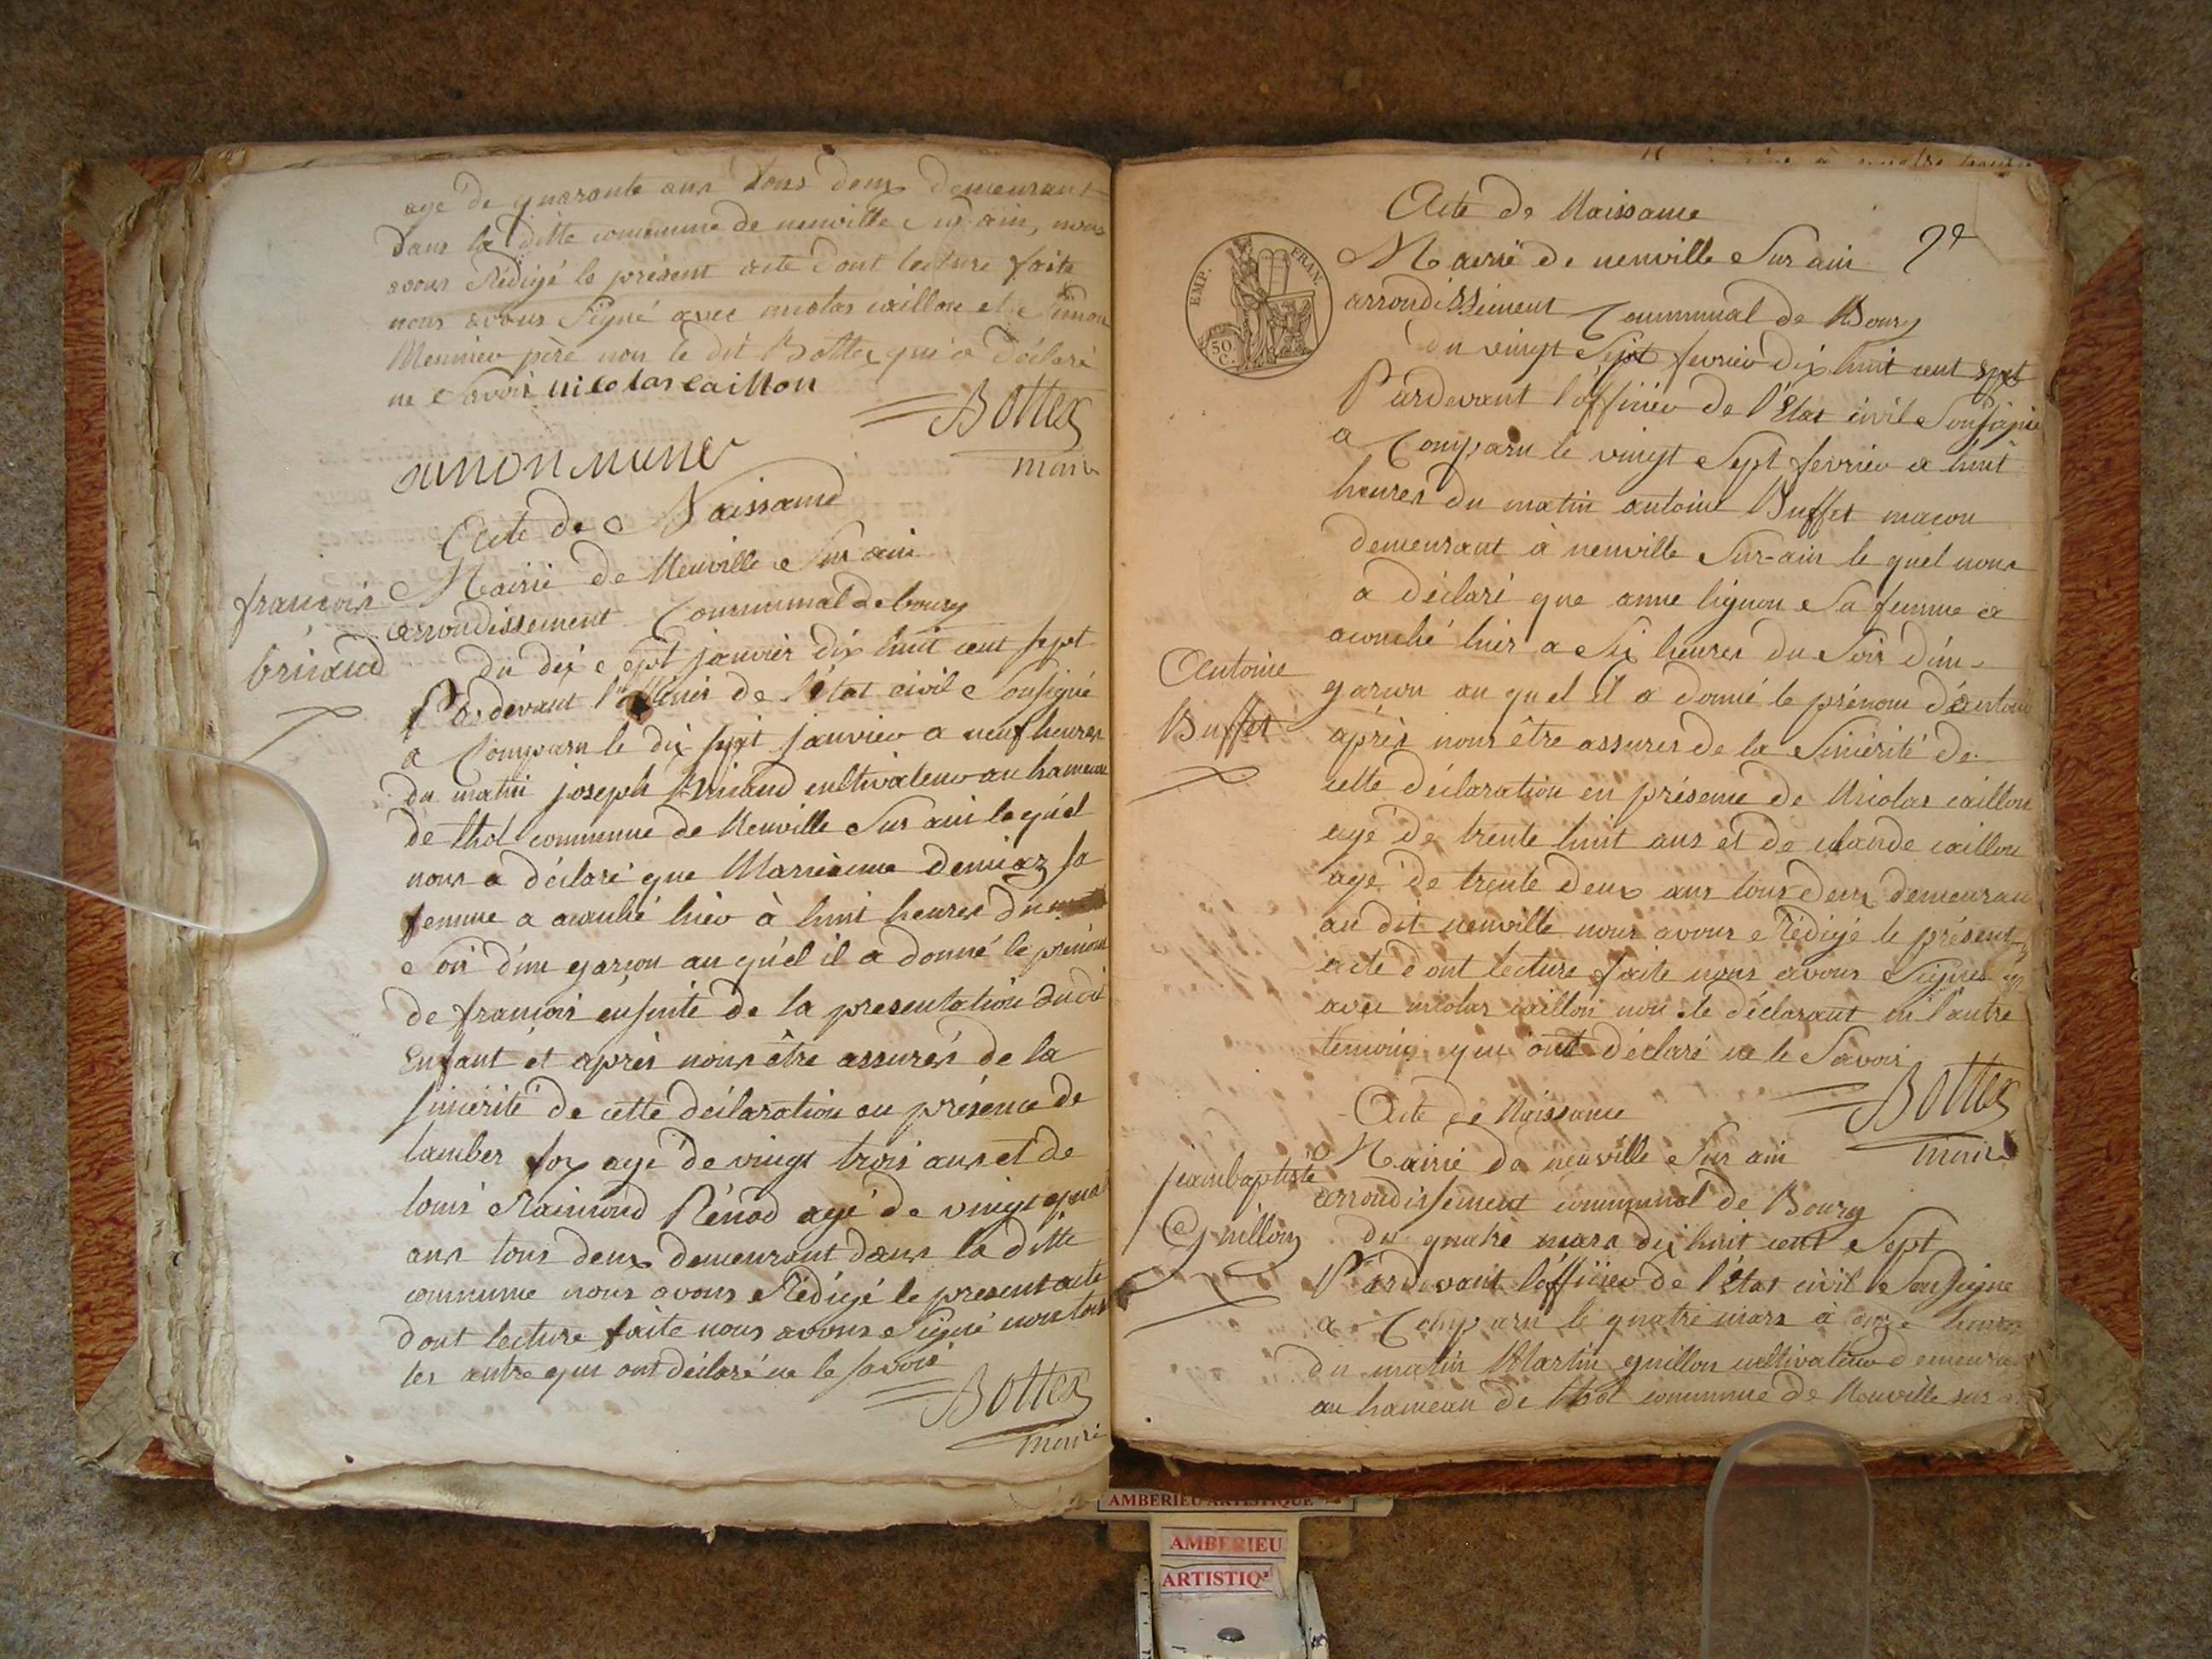 age de quarante ans tous deux demeurant
dans la ditte commune de neuville sur ain, nous
avons Rédigé le présent acte dont lecture faite
nous avons Signé avec nicolas caillon et Simon
Meunier père non le dit Bottex qui a déclaré
ne Savoir nicolas caillon
Bottex
maire
Acte de Naissance
françois
briand
Mairie de Neuville Sur ain
arrondissement Communal de bourg
du dix Sept janvier dix huit cent sept
Pardevant l'officier de l'état civil Sousigné
a Comparu le dix sept janvier a neuf heures
du matin joseph Briand cultivateur au hameau
de thol commune de Neuville Sur ain lequel
nous a déclaré que Marieanne deniaz sa
femme a acouché hier à huit heures du
Soir d'un garçon au quel il a donné le prénom
de françois ensuite de la presentation dudit
Enfant et après nous être assurés de la
sincérité de cette déclaration en présence de
lamber foy agé de vingt trois ans et de
louis Raimond Rénod agé de vingt quatre
ans tous deux demeurant dans la ditte
commune nous avons Rédigé le present acte
dont lecture faite nous avons Signé non tous
les autre qui ont déclaré ne le savoir
Bottex
maire
Acte de Naissance
EMP. FRAN.
50 C.
Mairie de neuville Sur ain
arrondissement Communal de Bourg
du vingt Sept fevrier dix huit cent sept
Pardevant l'officier de l'Etat civil Sousigné
a Comparu le vingt Sept fevrier a huit
heures du matin antoine Buffet maçon
demeurant à neuville Sur-ain le quel nous
a déclaré que anne lignon Sa femme a
acouché hier a Six heures du Soir d'un
Antoine
Buffet
garçon au quel il a donné le prénom d'antoine
après nous être assurés de la Sincérité de
cette déclaration en présence de Nicolas caillon
agé de trente huit ans et de claude caillon
agé de trente deux ans tous deux demeurant
au dit neuville nous avons Rédigé le présent
acte dont lecture faite nous avons Signés
avec nicolas caillon non le déclarant ni l'autre
temoin qui ont déclaré ne le Savoir
Bottex
maire
Acte de Naissance
jeanbaptiste
Guillon
Mairie de neuville Sur ain
arrondissement communal de Bourg
du quatre mars dix huit cent Sept
Pardevant l'officier de l'état civil Sousigné
a Comparu le quatre mars à onze heures
du matin Martin guillon cultivateur demeurant
au hameau de thol commune de Neuville sur
AMBERIEU ARTISTIQUE
AMBERIEU
ARTISTIQ